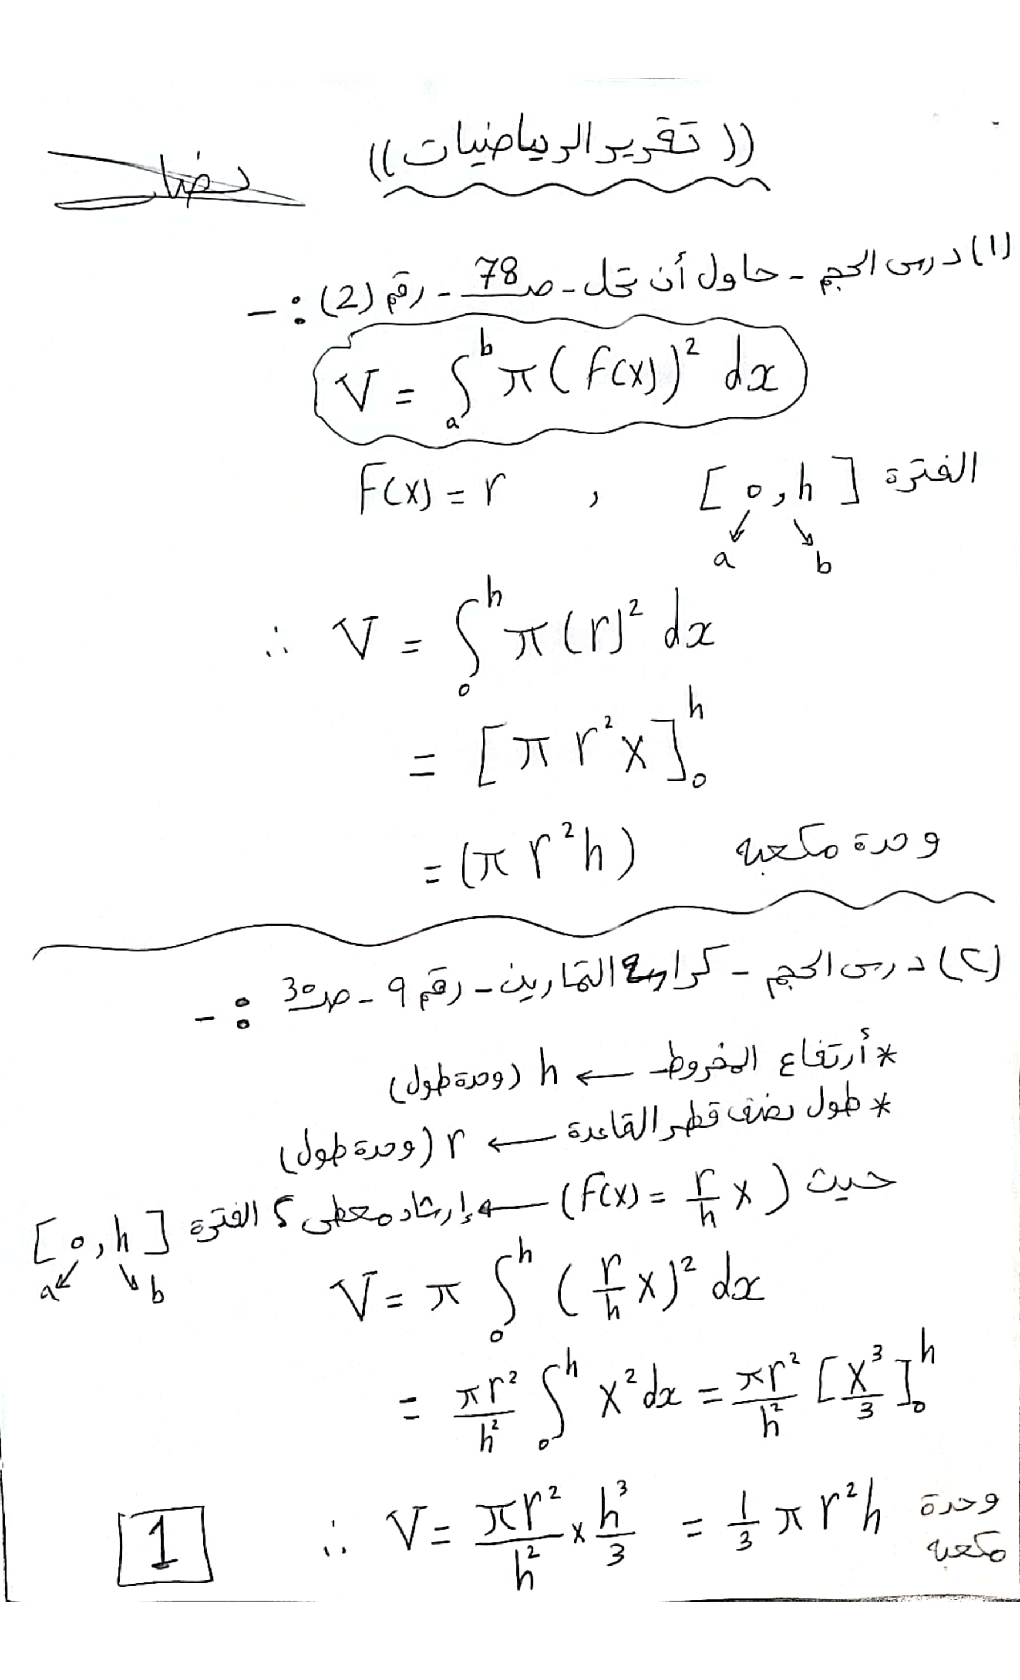 (( تقرير الرياضيات ))
(١) درس الحجم - حاول أن تحل - صـ 78 - رقم (2) :-
V = ∫ₐᵇ π (F(x))² dx
F(x) = r , [0, h] الفترة
a b
∴ V = ∫₀ʰ π (r)² dx
= [π r² x]₀ʰ
= (π r² h) وحدة مكعبة
(٢) درس الحجم - كراسة التمارين - رقم 9 - صـ 30 :-
* أرتفاع المخروط ← h (وحدة طول)
* طول نصف قطر القاعدة ← r (وحدة طول)
حيث (F(x) = r/h x) ← إرشاد معطى ؟ الفترة [0, h]
a b
V = π ∫₀ʰ (r/h x)² dx
= πr²/h² ∫₀ʰ x² dx = πr²/h² [x³/3]₀ʰ
∴ V = πr²/h² × h³/3 = 1/3 π r² h وحدة مكعبة
1